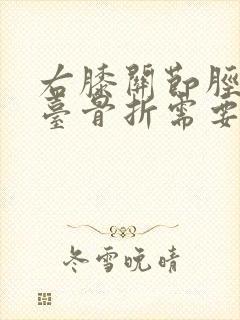 右膝關節脛
臺骨折需要
冬雪晚晴